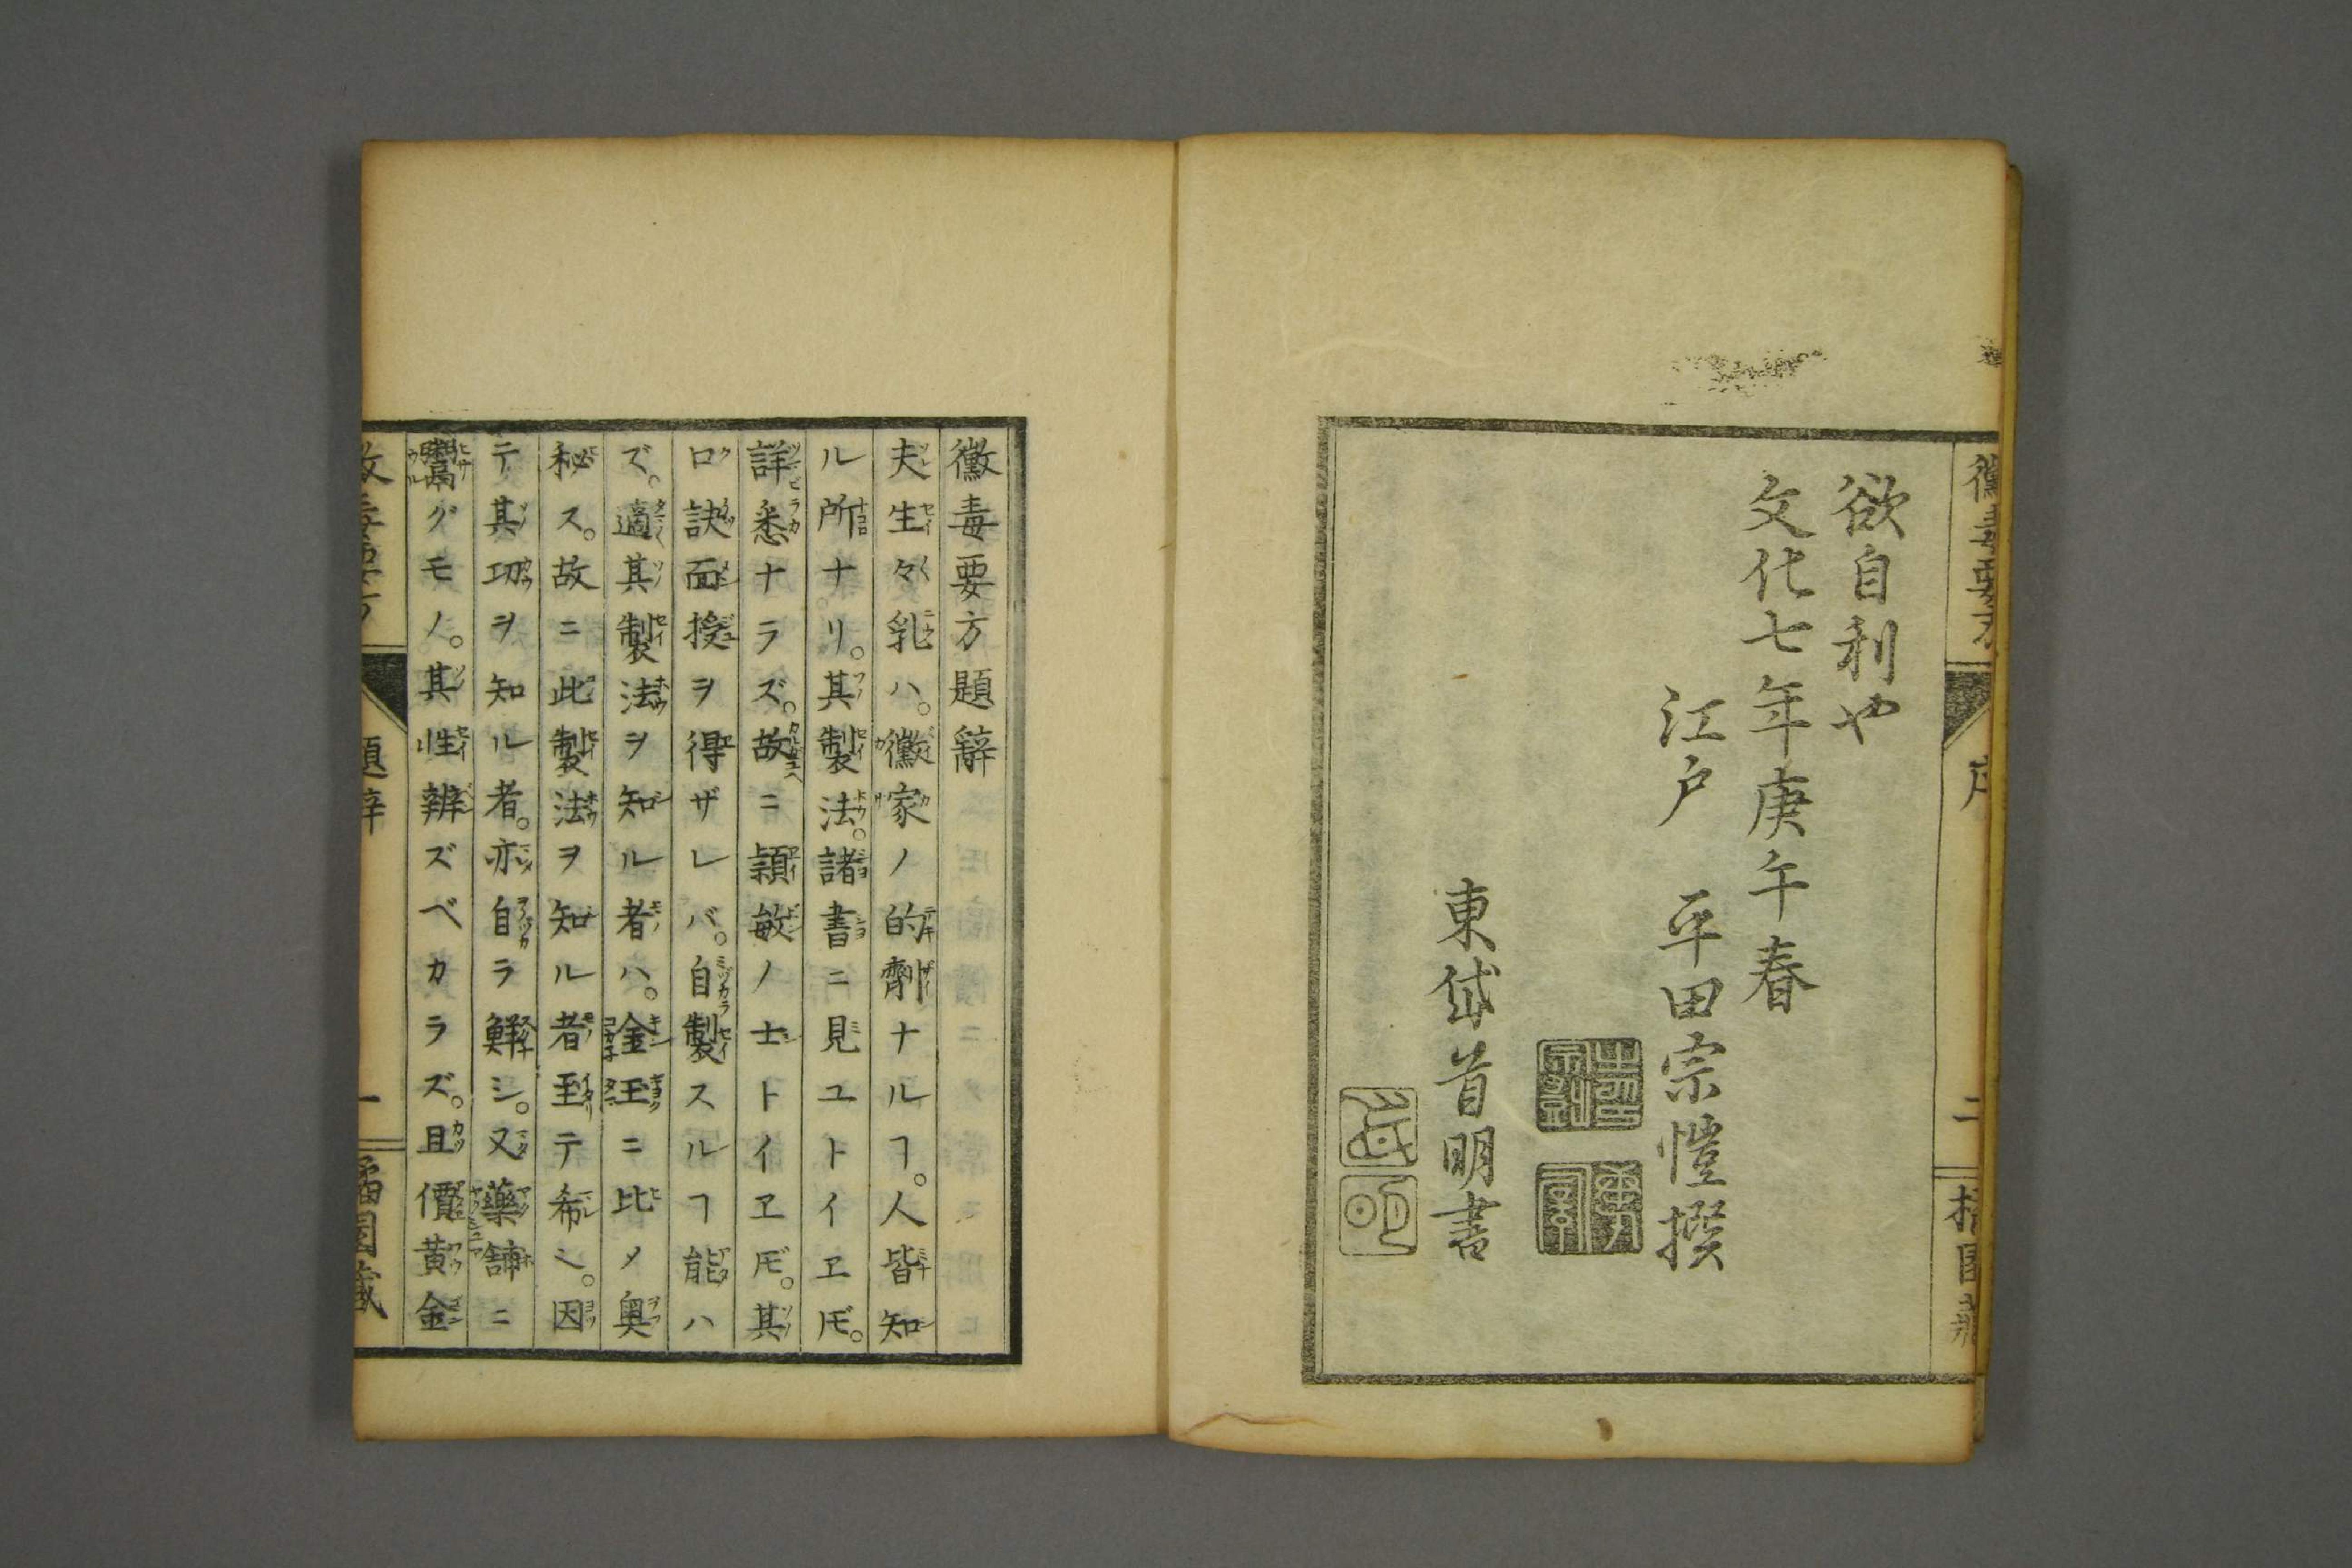 黴毒要方
序
二
欲自利也
文化七年庚午春
江戸　平田宗愷撰
東岱首明書
黴毒要方題辭
夫生々乳ハ。黴家ノ的劑ナルヿ。人皆知
ル所ナリ。其製法。諸書ニ見ユトイヱ𪜈。
詳悉ナラズ。故ニ穎敏ノ士トイヱ𪜈。其
口訣面授ヲ得ザレバ。自製スルヿ能ハ
ズ。適其製法ヲ知ル者ハ。金玉ニ比メ奥
秘ス。故ニ此製法ヲ知ル者至テ希シ。因
テ其功ヲ知ル者。亦自ラ鮮シ。又藥舗ニ
鬻グモノ。其性辨ズベカラズ。且價黄金
題辞
一